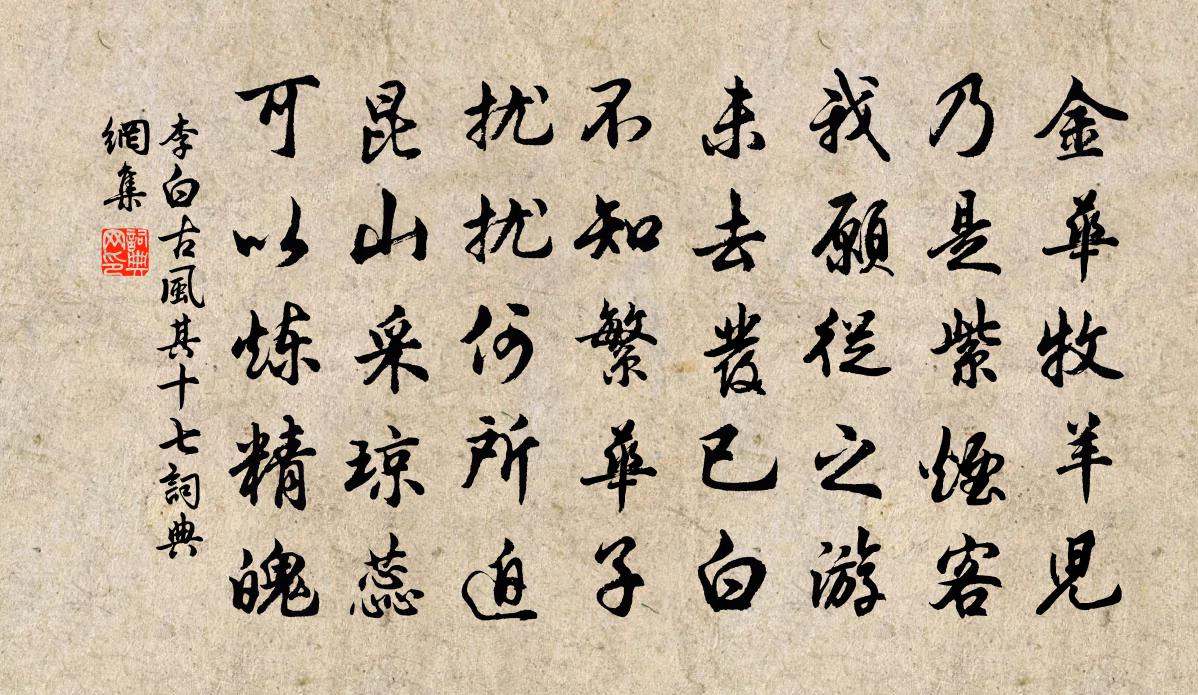 金華牧羊児
乃是紫煙客
我願従之游
未去發已白
不知繁華子
扰扰何所迫
昆山采琼蕊
可以炼精魄
李白古風其十七詞典
網集
詞典
网印